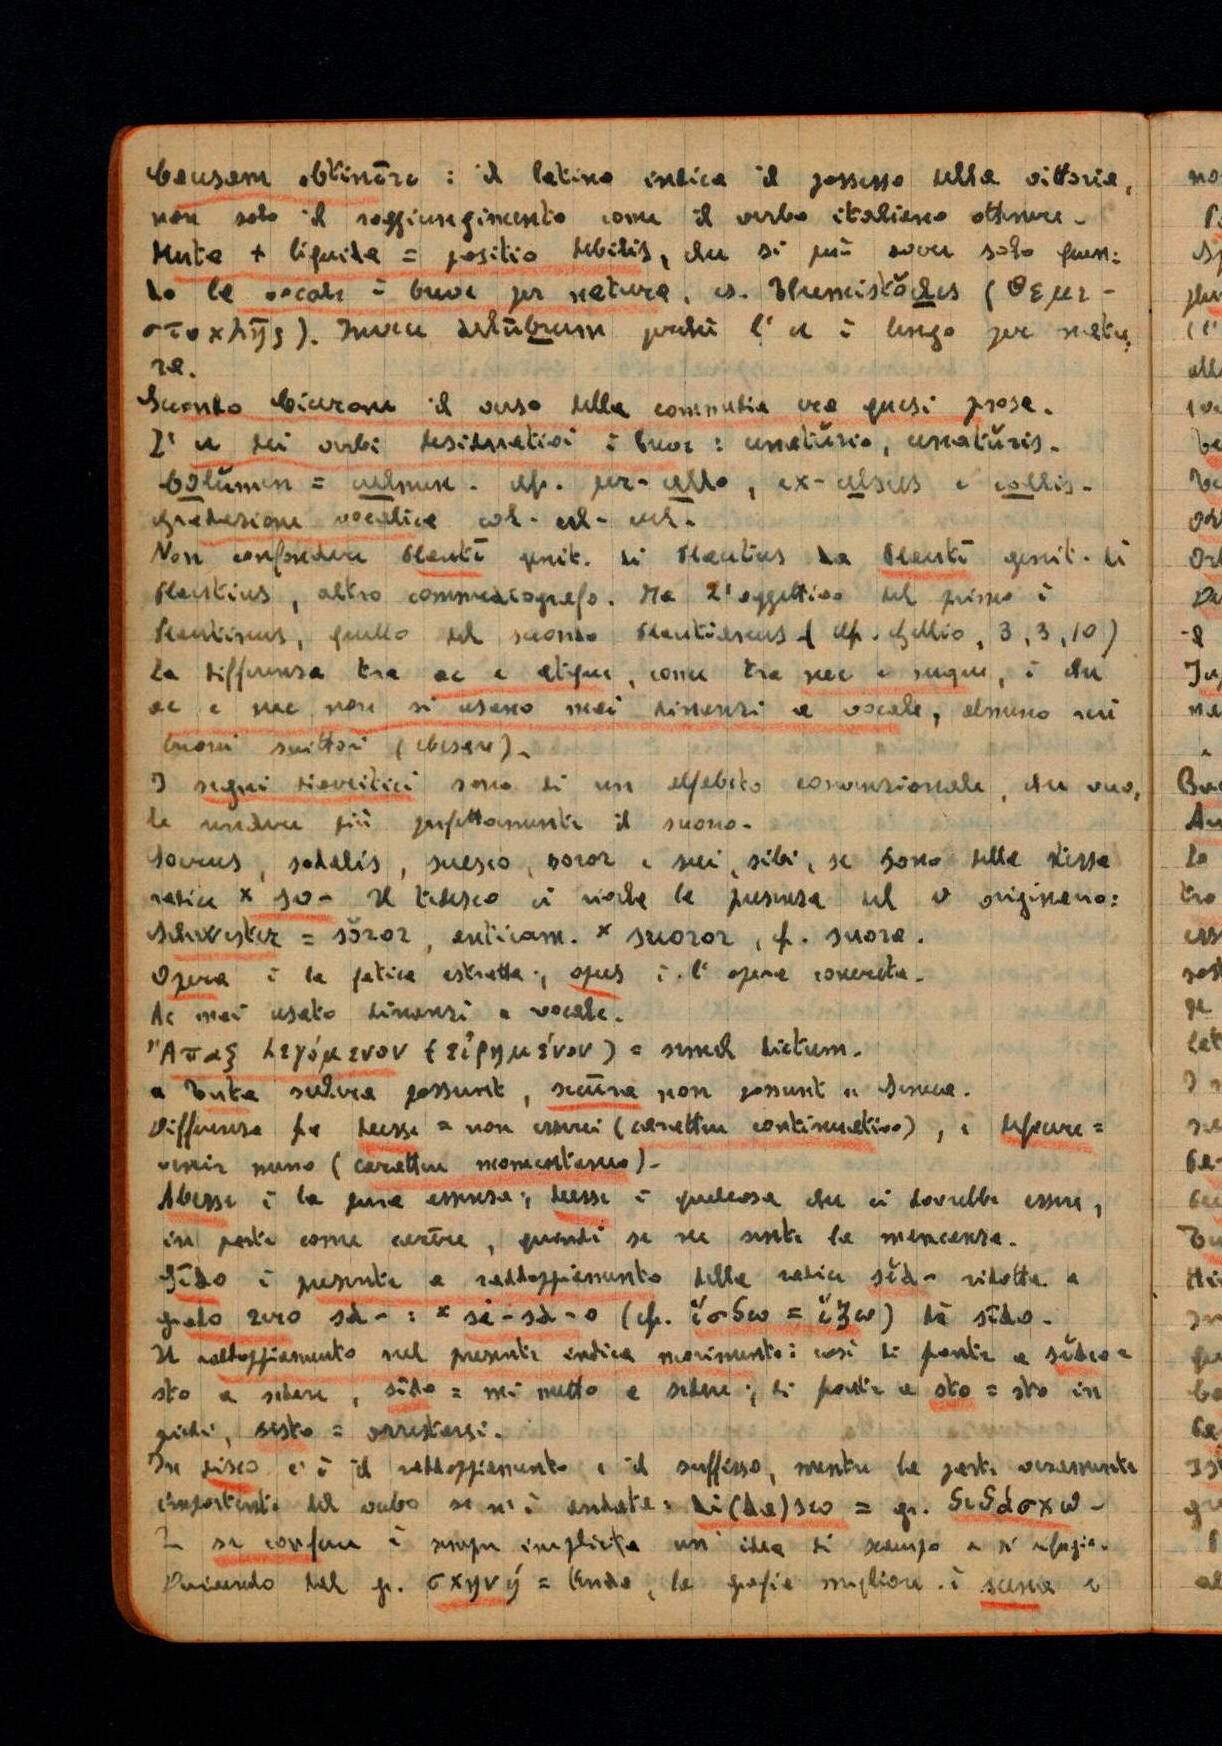 Causam obtinēre : il latino indica il possesso della vittoria,
non solo il raggiungimento come il verbo italiano ottenere.
Muta + liquida = positio debilis, che si può avere solo quan:
do la vocale è breve per natura, es. Themistŏcles (Θεμι-
στοκλῆς). Invece delūbrum perché l'u è lunga per natu,
ra.
Secondo Cicerone il verso della commedia era quasi prosa.
L'u dei verbi desiderativi è breve : cenatŭrio, cenatŭris.
Cŏlŭmen = culmen. cfr. per-cello, ex-celsus e collis.
gradazione vocalica col- cel- cul-
Non confondere Plautī genit. di Plautus da Plautī genit. di
Plautius, altro commediografo. Ma l'aggettivo del primo è
Plautinus, quello del secondo Plautianus (cfr. Gellio, 3, 3, 10)
La differenza tra ac e atque, come tra nec e neque, è che
ac e nec non si usano mai dinanzi a vocale, almeno nei
buoni scrittori (Cesare).
I segni diacritici sono di un alfabeto convenzionale, che vuo,
le rendere più perfettamente il suono.
Socius, sodalis, suesco, soror e sui, sibi, se sono della stessa
radice * sv- Il tedesco ci rivela la presenza del v originario:
Schwester = sŏror, anticam. * suoror, f. suora.
Opera è la fatica astratta; opus è l'opera concreta.
Ac mai usato dinanzi a vocale.
"Απαξ λεγόμενον (εἰρημένον) = semel dictum.
" Tuta scelera possunt, secūra non possunt " Seneca.
Differenza fra deesse = non esserci (carattere continuativo), e deficere =
venir meno (carattere momentaneo).
Abesse è la pura assenza; deesse è qualcosa che ci dovrebbe essere,
in parte come carēre, quindi se ne sente la mancanza.
Sīdo è presente a raddoppiamento della radice sĕd- ridotta a
grado zero sd- : * si-sd-o (cfr. ἵσδω = ἵζω) dà sīdo.
Il raddoppiamento nel presente indica movimento: così di fronte a sĕdeo =
sto a sedere, sīdo = mi metto a sedere; di fronte a sto = sto in
piedi, sisto = arrestarsi.
In disco c'è il raddoppiamento e il suffisso, mentre la parte veramente
importante del verbo se n'è andata: di(da)sco = gr. διδάσκω -
In se conferre è sempre implicita un'idea di scampo o di rifugio.
Derivando dal gr. σκηνή = tenda, la grafia migliore è scena e